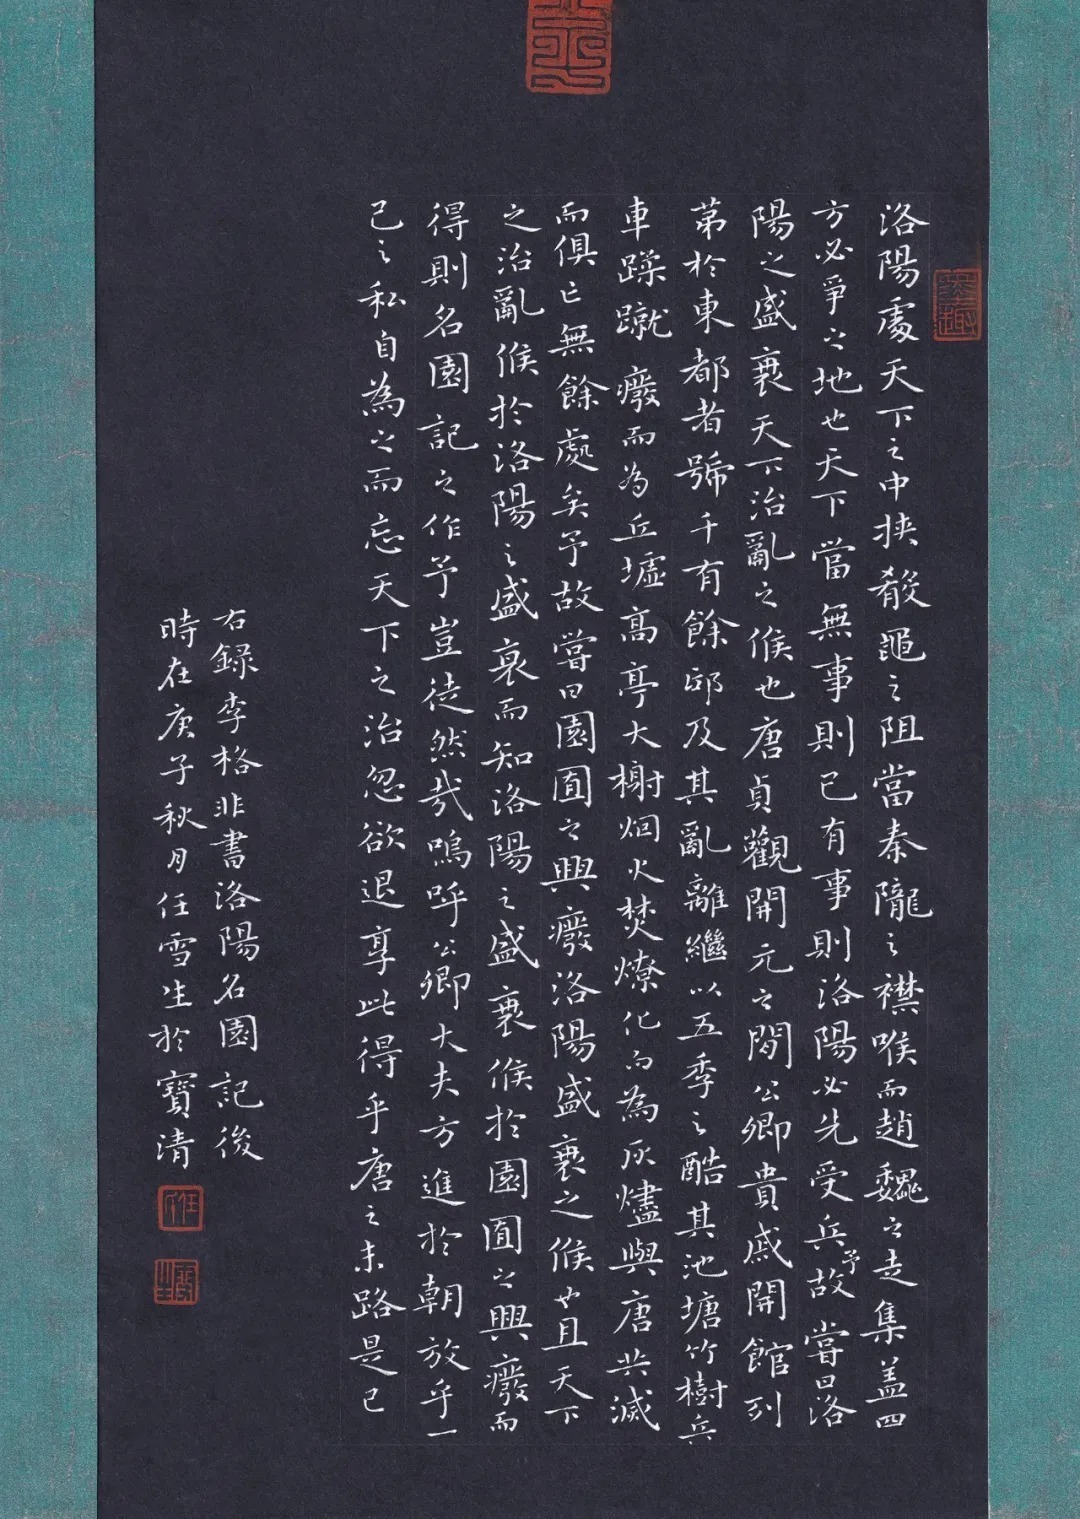 洛陽處天下之中挾殽黽之阻當秦隴之襟喉而趙魏之走集蓋四
方必爭之地也天下當無事則已有事則洛陽必先受兵予故嘗曰洛
陽之盛衰天下治亂之候也唐貞觀開元之間公卿貴戚開館列
第於東都者號千有餘邸及其亂離繼以五季之酷其池塘竹樹兵
車蹂蹴廢而為丘墟高亭大榭烟火焚燎化而為灰燼與唐共滅
而俱亡無餘處矣予故嘗曰園囿之興廢洛陽盛衰之候也且天下
之治亂候於洛陽之盛衰而知洛陽之盛衰候於園囿之興廢而
得則名園記之作予豈徒然哉嗚呼公卿大夫方進於朝放乎一
己之私自為之而忘天下之治忽欲退享此得乎唐之末路是已
右錄李格非書洛陽名園記後
時在庚子秋月任雪生於寶清